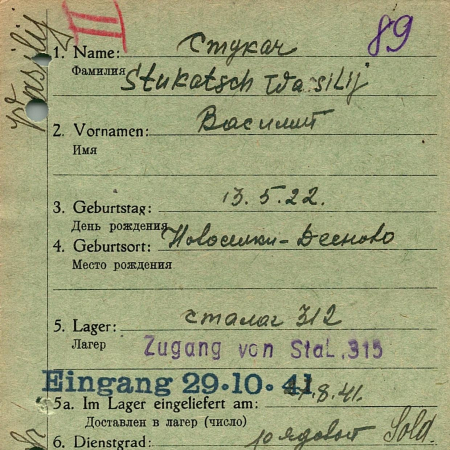 Wasilij
III
89
1. Name: Стукач
Фамилия Stukatsch Wassilij
2. Vornamen: Василий
Имя
3. Geburtstag: 13.5.22.
День рождения
4. Geburtsort: Новоселки-
Место рождения
5. Lager: сталаг 312
Лагер
Zugang von Stal. 315
Eingang 29.10.41
5a. Im Lager eingeliefert am: 8.41.
Доставлен в лагер (число)
6. Dienstgrad: рядовой Sold.